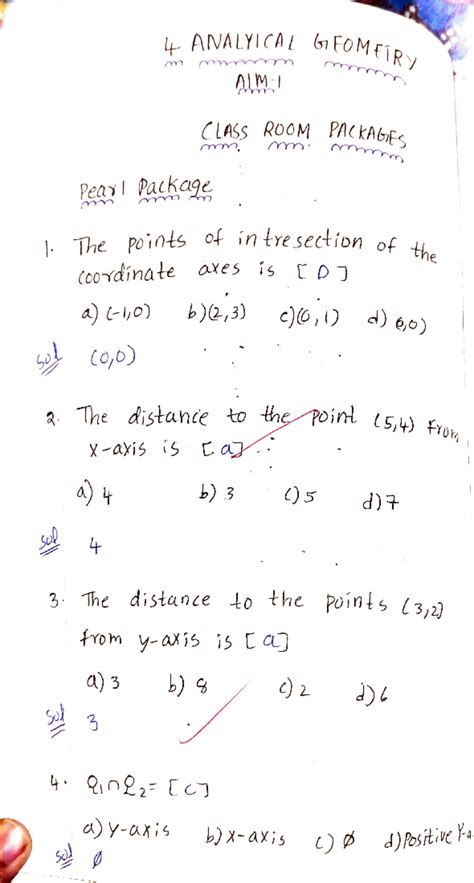 4 ANALYICAL GEOMETRY
AIM-1
CLASS ROOM PACKAGES
Pearl Package
1. The points of intresection of the
coordinate axes is [D]
a) (-1,0) b)(2,3) c)(0,1) d) 0,0)
sol (0,0)
2. The distance to the point (5,4) from
x-axis is [a]
a) 4 b) 3 c) 5 d) 7
sol 4
3. The distance to the points (3,2)
from y-axis is [a]
a) 3 b) 8 c) 2 d) 6
sol 3
4. Q₁∩Q₂= [C]
a) y-axis b) x-axis c) ø d) Positive
sol ø